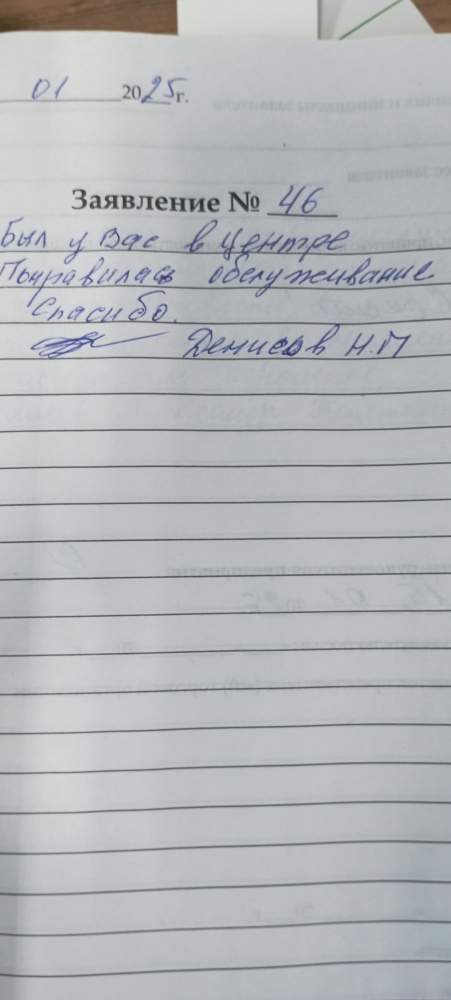 01 2025г.
Заявление № 46
Был у Вас в центре
Понравилась обслуживание
Спасибо.
Денисов Н.П